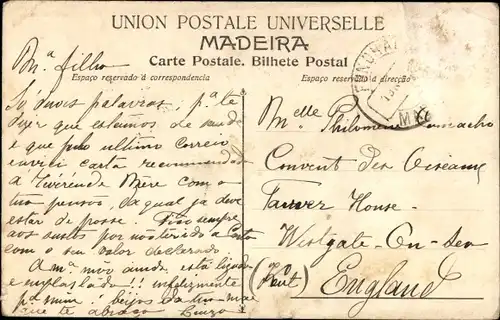 UNION POSTALE UNIVERSELLE
MADEIRA
Carte Postale. Bilhete Postal
Espaço reservado á correspondencia
Espaço reservado á direcção
FUNCHAL
Mª filha
Só duas palavras, pª te
dizer que estamos de saude
e que pelo ultimo correio
enviei carta recommendada
á Révérende Mère com o
teu da qual já deve
estar de posse. Fico sempre
aos sustos por não ter ido a carta
com o seu valor declarado.
A mª mão ainda está ligada
e emplastada!! infelizmente
pª mim! beijos da tua mãe
que te abraça Luiza
Melle Philomena Camacho
Convent Des Oiseaux
Tanver House
Westgate-On-Sea
(Kent)
England